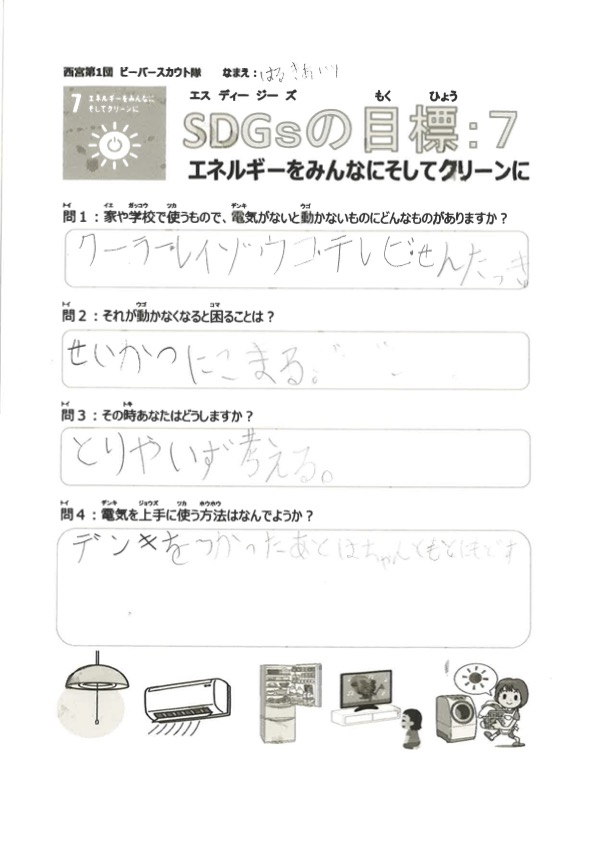 西宮第1団 ビーバースカウト隊 なまえ：はるきあいり
7 エネルギーをみんなに
そしてクリーンに
エス ディー ジー ズ もく ひょう
SDGsの目標：7
エネルギーをみんなにそしてクリーンに
トイ イエ ガッコウ ツカ デンキ ウゴ
問1：家や学校で使うもので、電気がないと動かないものにどんなものがありますか？
クーラー・レイゾウコ・テレビ・せんたっき
トイ ウゴ コマ
問2：それが動かなくなると困ることは？
せいかつにこまる。
トイ トキ
問3：その時あなたはどうしますか？
とりやいず考える。
トイ デンキ ジョウズ ツカ ホウホウ
問4：電気を上手に使う方法はなんでようか？
デンキをつかったあとはちゃんともとにもどす